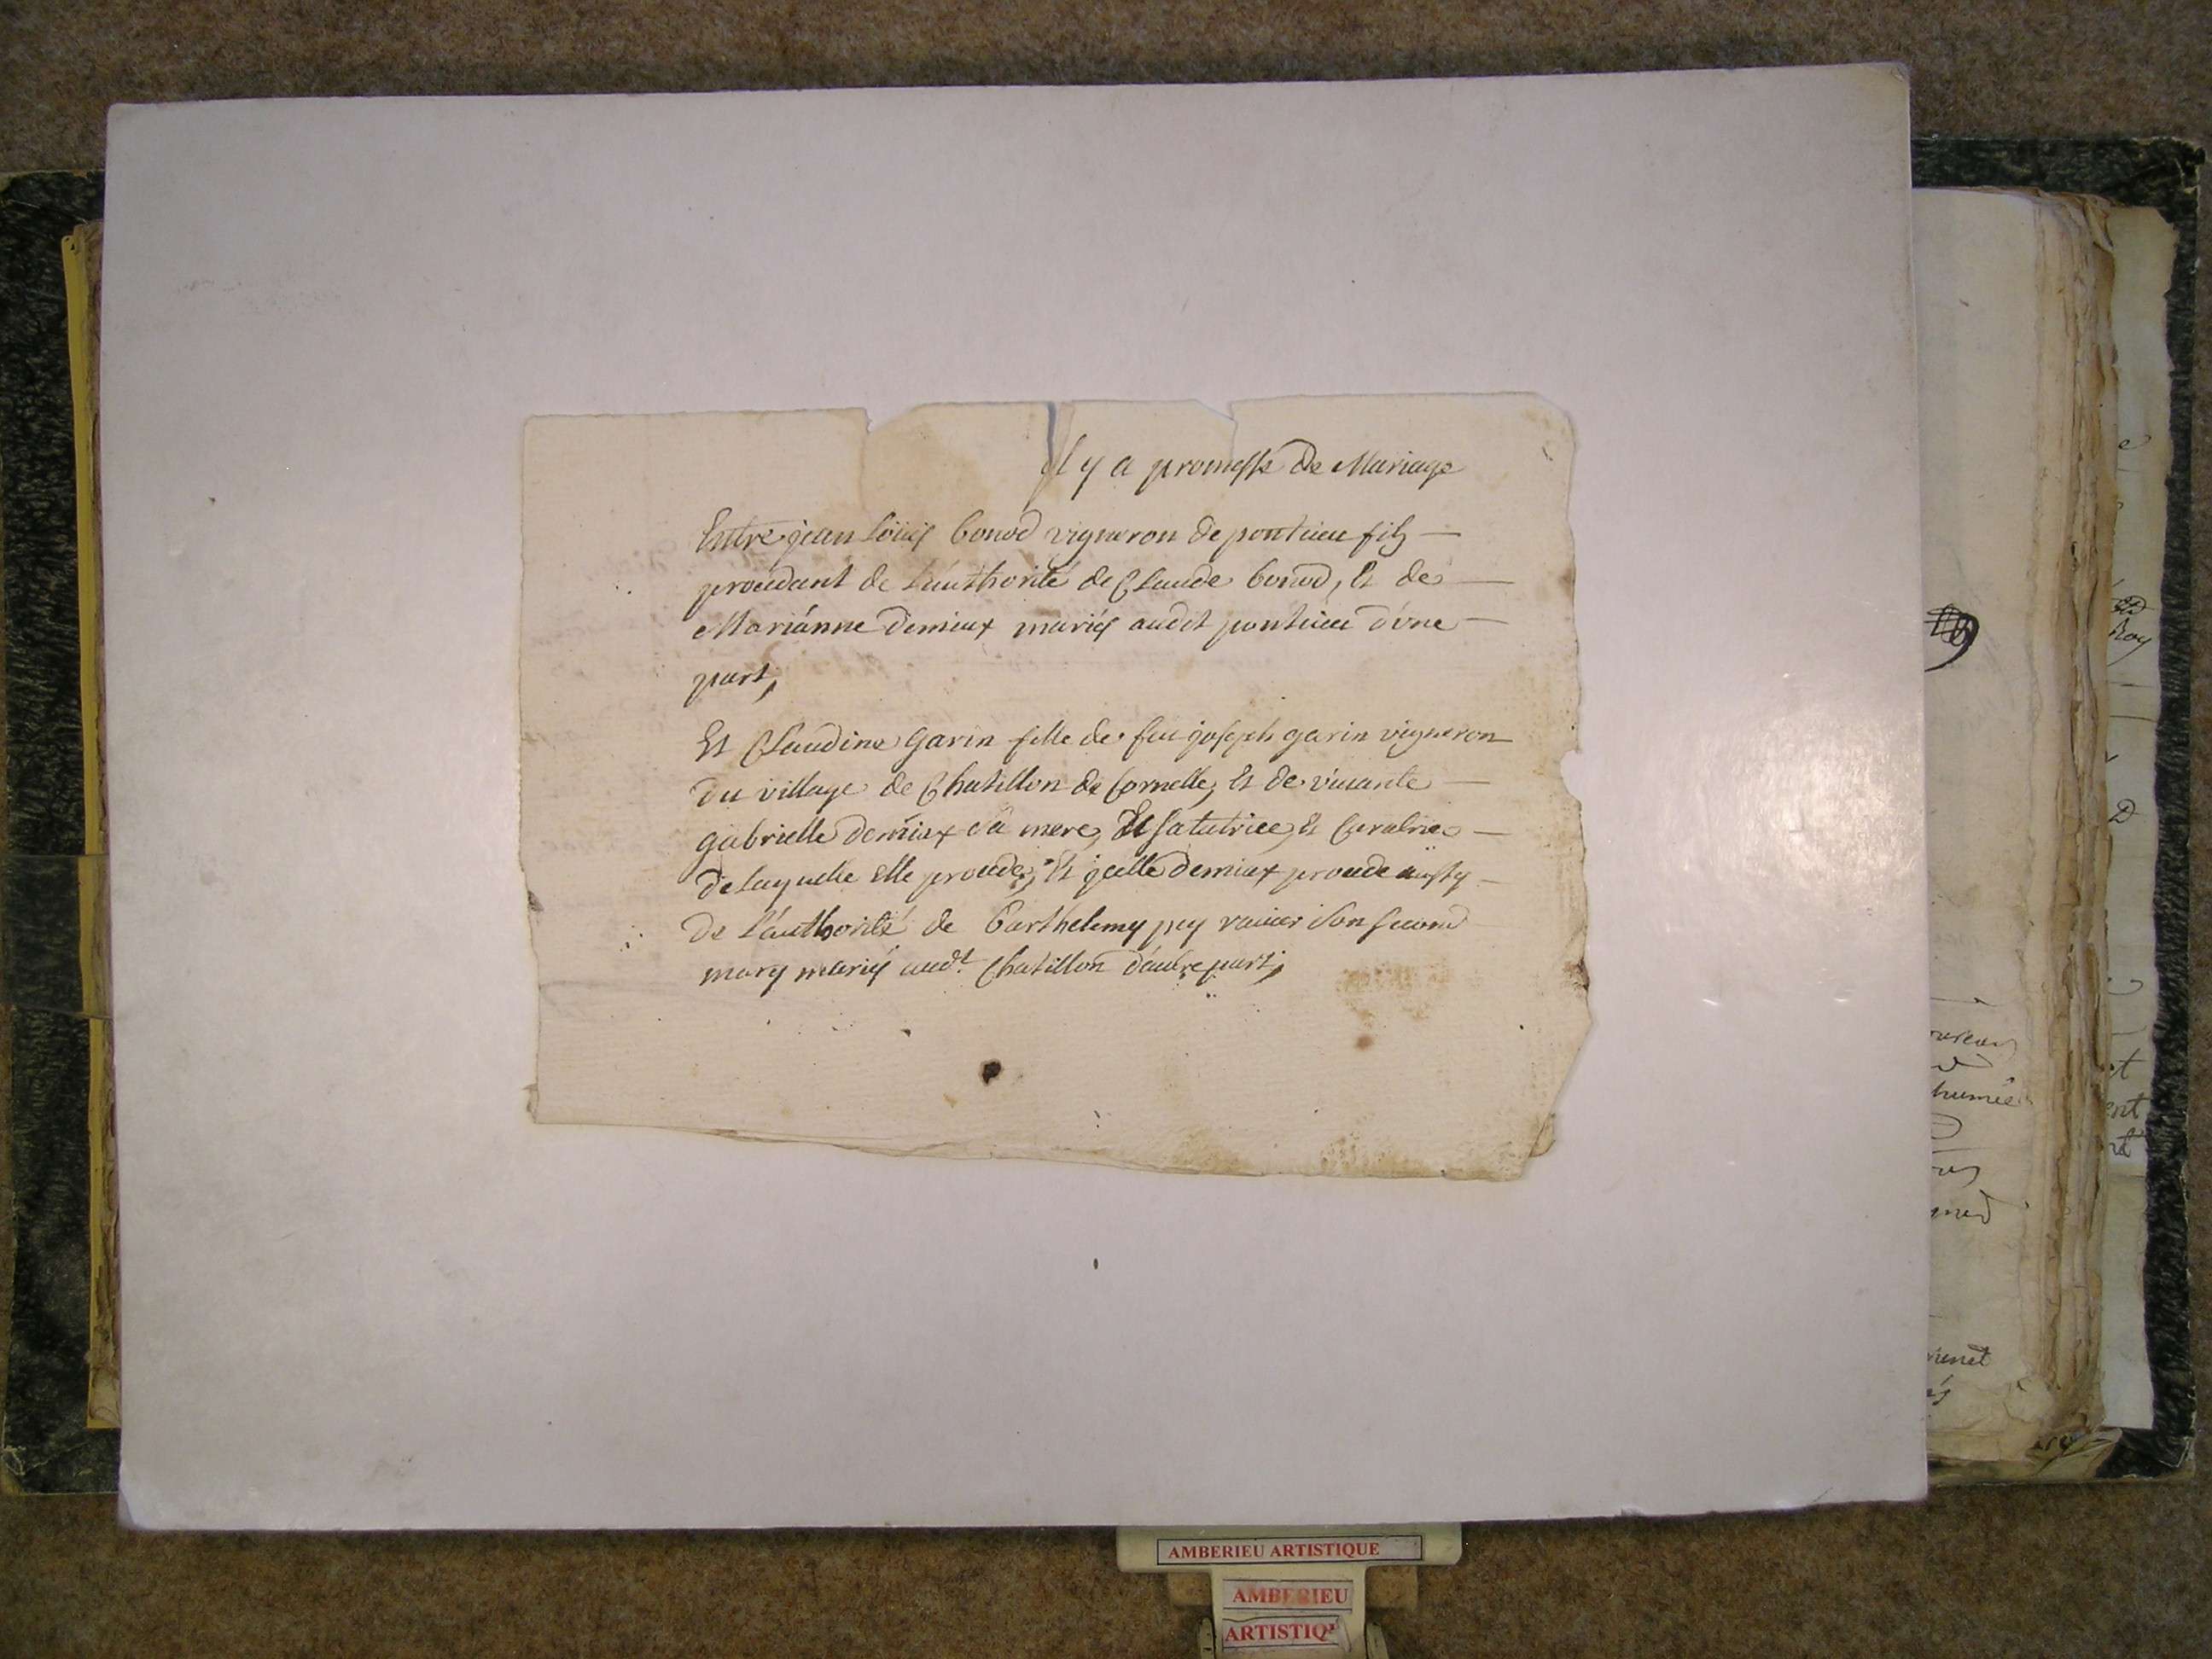 Il y a promesse de Mariage
Entre jean Loüis bonod vigneron de pontieu fils
procedant de L'authorité de Claude bonod, Et de
Mariánne demiaux mariés audit pontieu d'vne
part,
Et Claudine Garin fille de feu joseph garin vigneron
du village de Chatillon de Cornelle, Et de vivante
gabrielle demiax sa mere, Et sa tutrice, Et Curatrice
de laquelle elle procede, Et jcelle demiax procede aussy
de l'authorité de barthelemy pey son second
mary mariés aud.t Chatillon d'autre part,
oureur
humée
nenet
Roy
ent
AMBERIEU ARTISTIQUE
AMBERIEU
ARTISTIQ